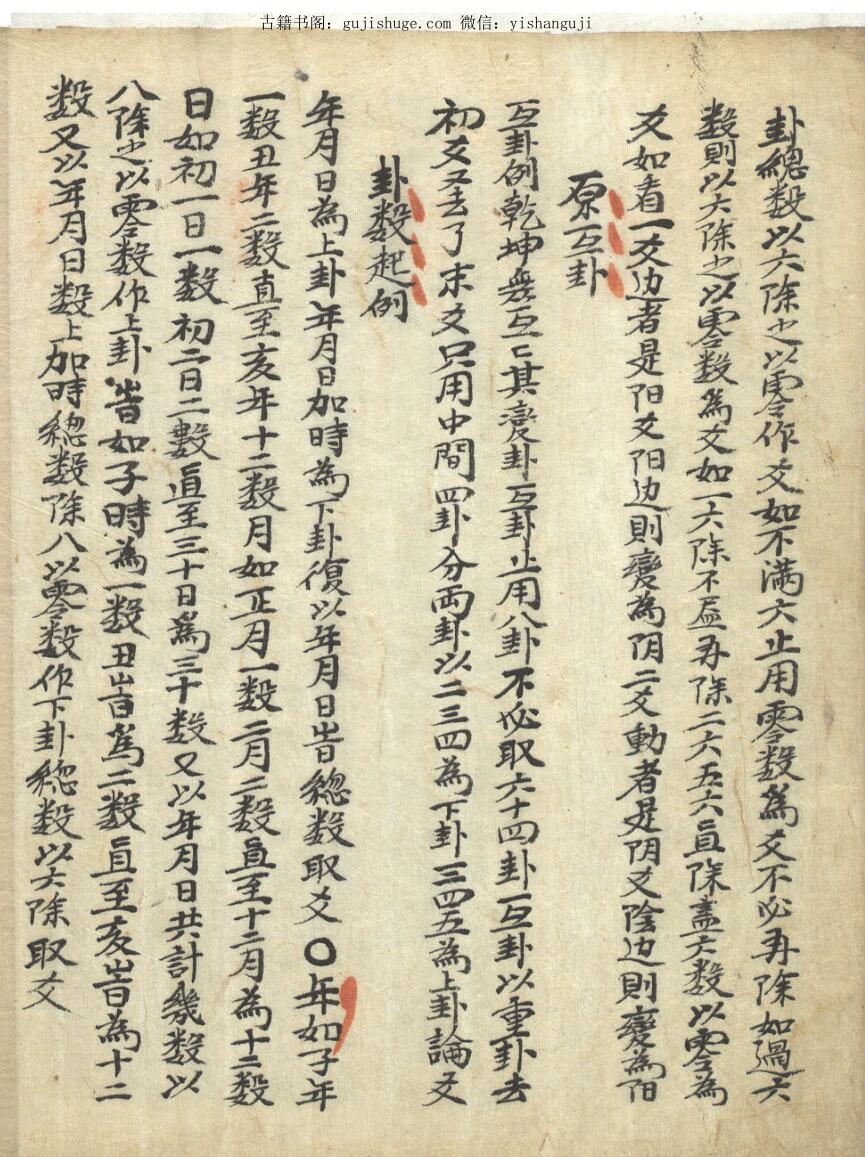 古籍书阁：gujishuge.com 微信：yishanguji
卦總数以六除之以零作爻如不满六止用零数為爻不必再除如過六
数則以六除之以零数為爻如一六除不尽再除二六五六直除盡六数以零為
爻如看一爻边者是阳爻阳边則變為阴二爻動者是阴爻陰边則變為阳
原互卦
互卦例乾坤無互亡其变卦互卦止用八卦不必取六十四卦互卦以重卦去
初爻及去了末爻只用中間四卦分両卦以二三四為下卦三四五為上卦論爻
卦数起例
年月日為上卦年月日加時為下卦復以年月日旹總数取爻〇年如子年
一数丑年二数直至亥年十二数月如正月一数二月二数直至十二月為十二数
日如初一日一数初二日二數直至三十日為三十数又以年月日共計幾数以
八除之以零数作上卦旹如子時為一数丑旹為二数直至亥旹為十二
数又以年月日数上加時總数除八以零数作下卦總数以六除取爻